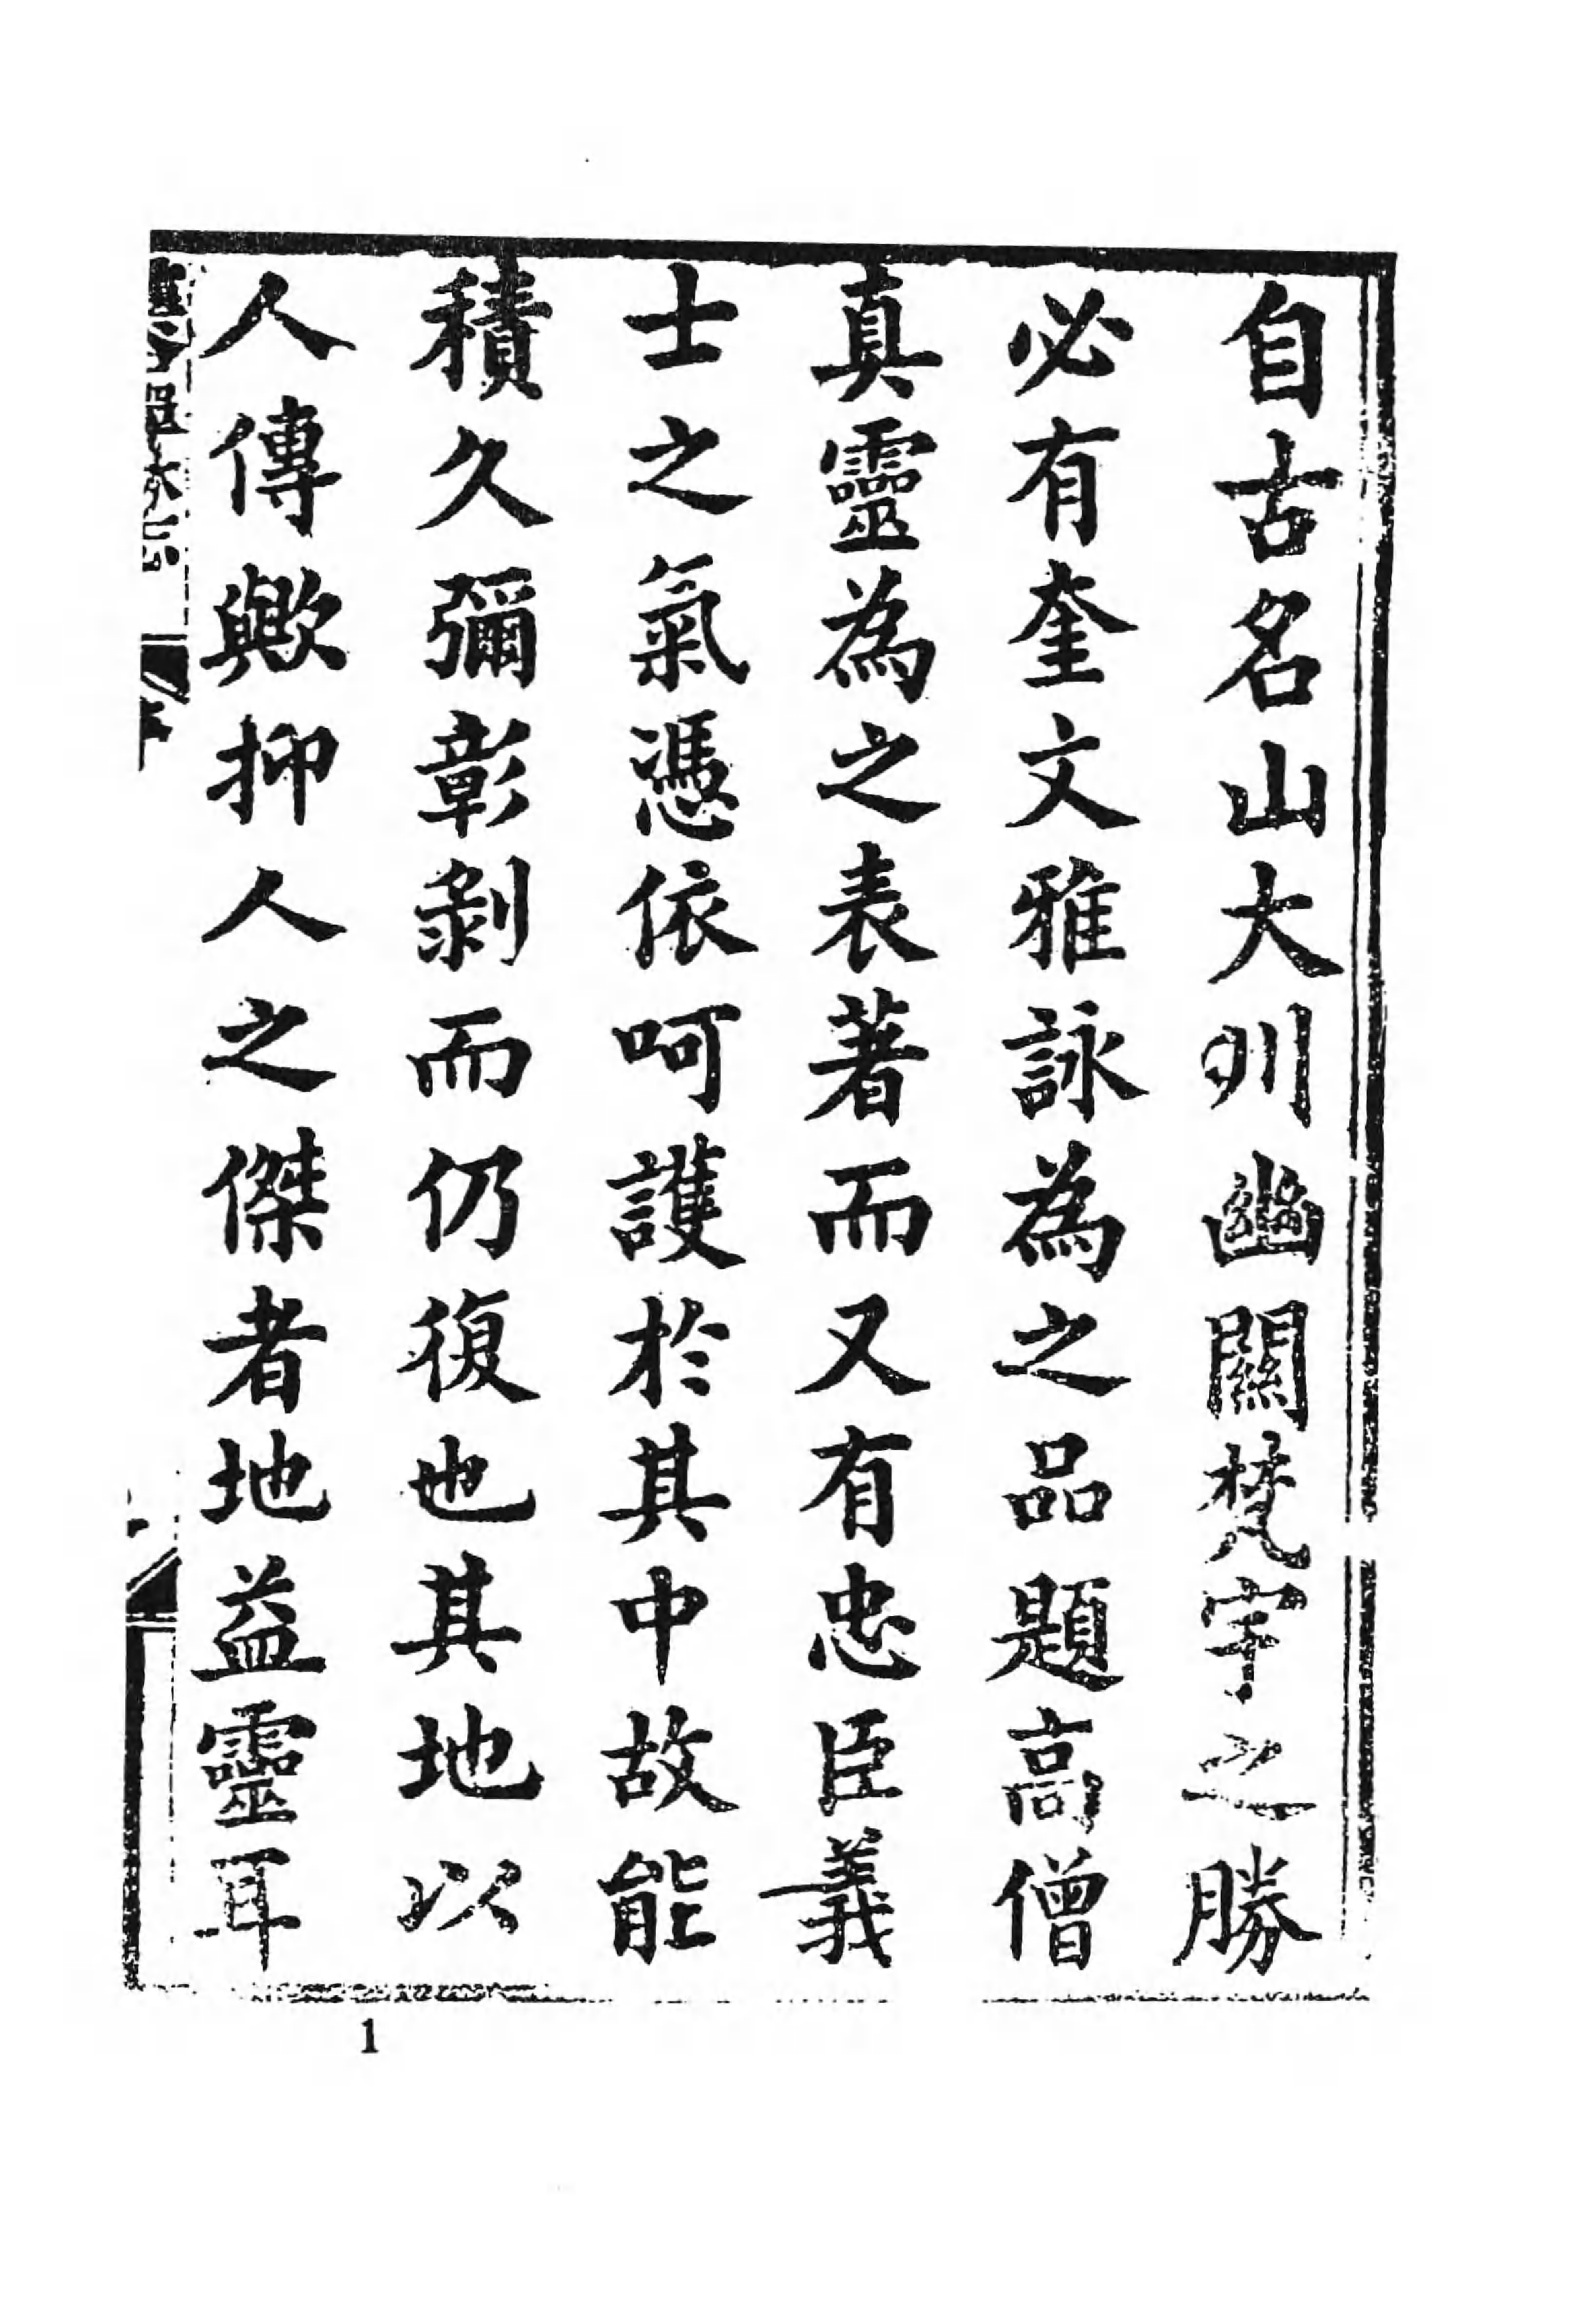 自古名山大川幽關梵宇之勝
必有奎文雅詠為之品題高僧
真靈為之表著而又有忠臣義
士之氣憑依呵護於其中故能
積久彌彰剝而仍復也其地以
人傳歟抑人之傑者地益靈耳
序
1